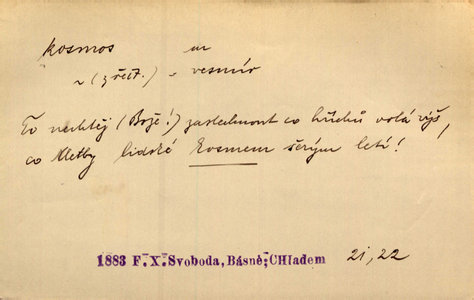 kosmos m
~ (z řečt.) - vesmír
To nechtěj (Bože!) zaslechnout co hříchů volá výš,
co kletby lidské kosmem šírým letí!
1883 F. X. Svoboda, Básně; CHladem 21, 22